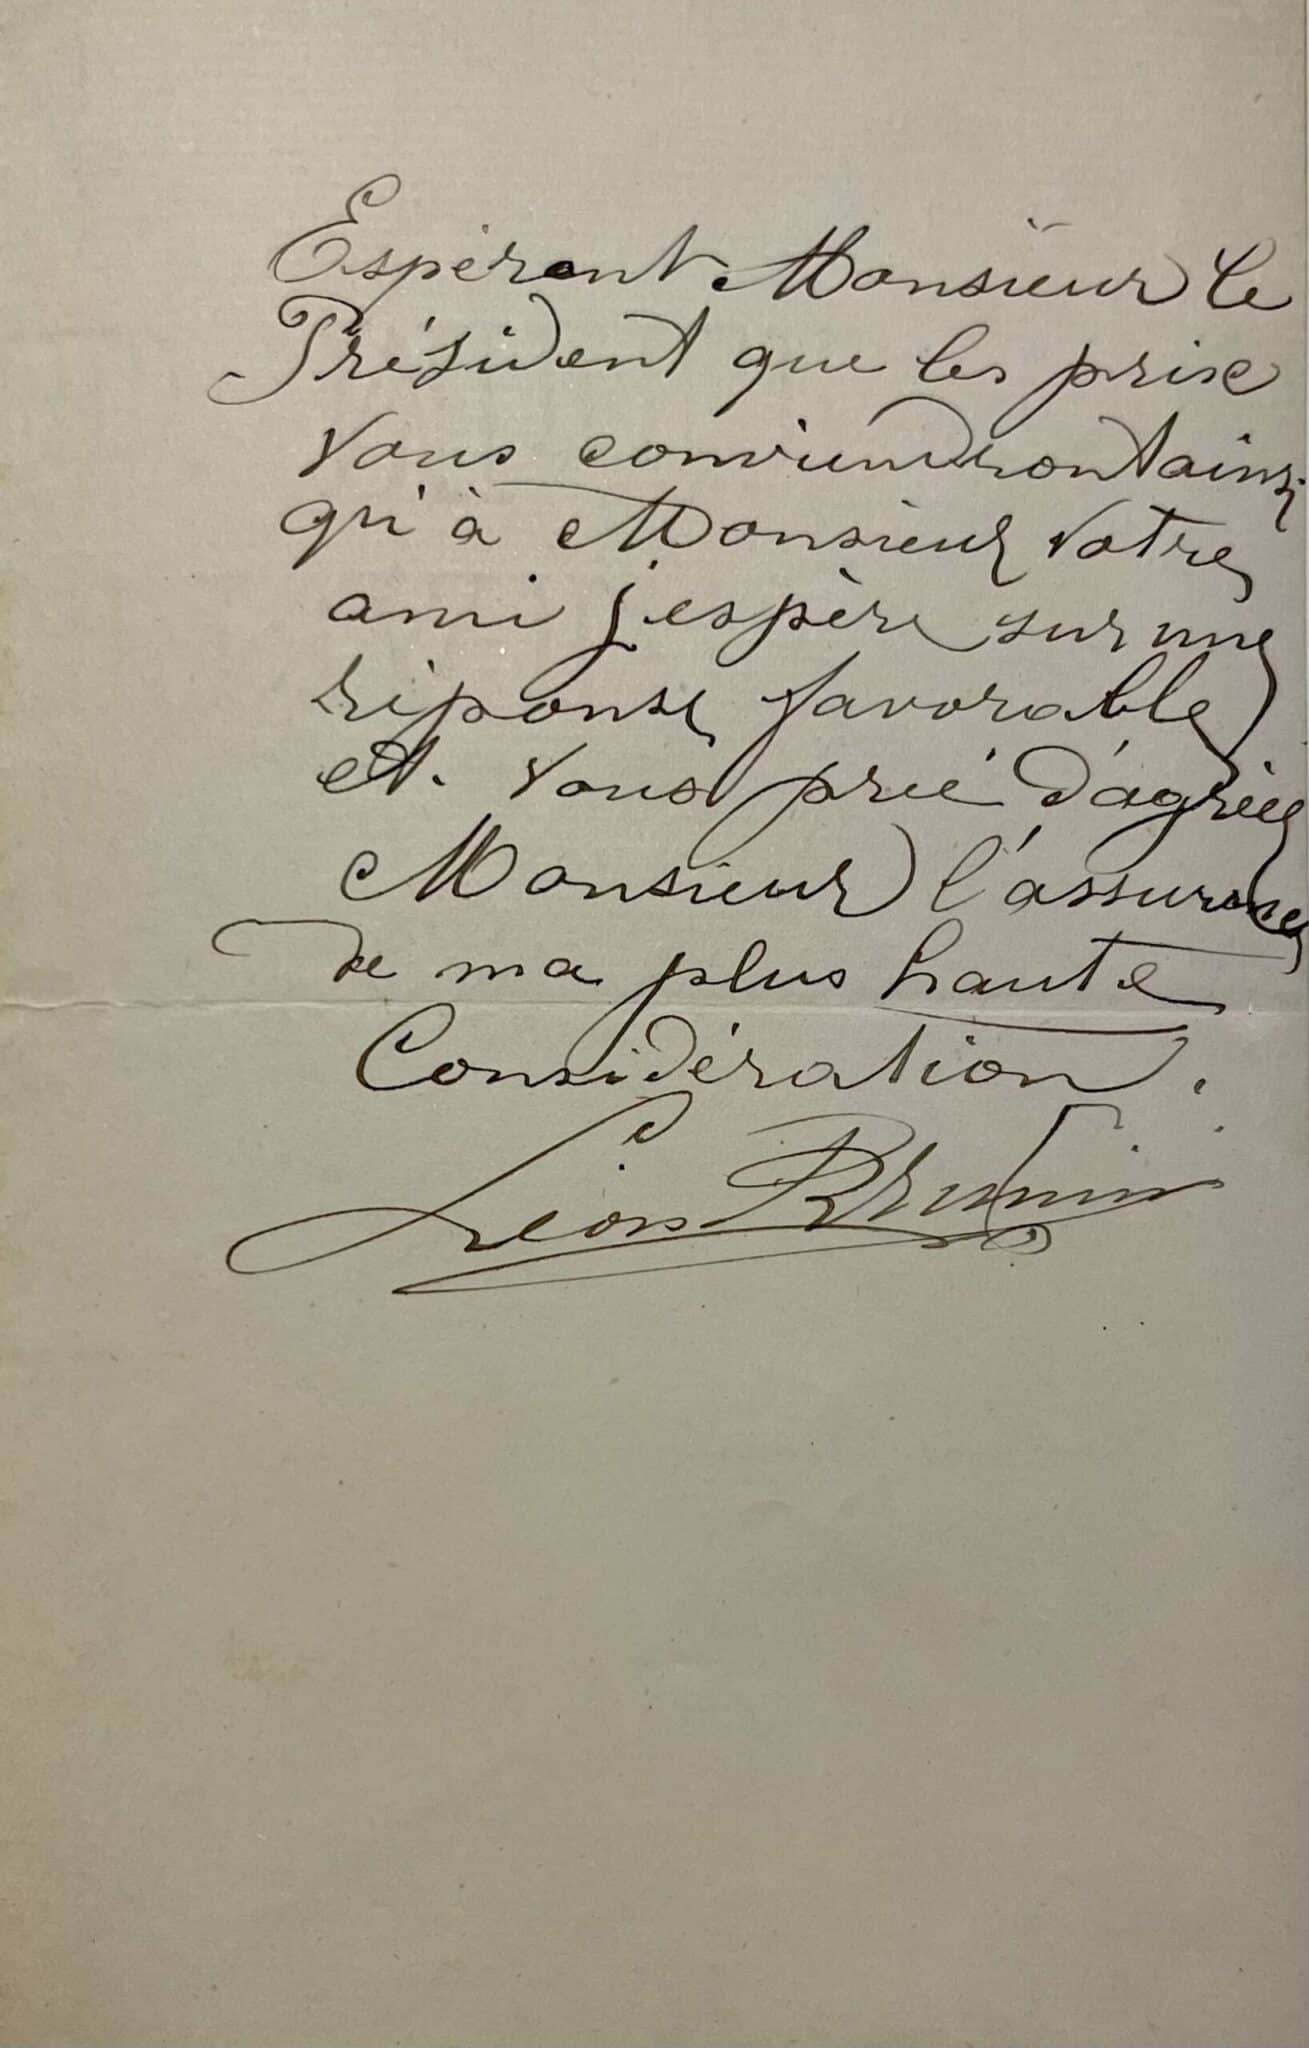 Espérant Monsieur le
Président que les prix
vous conviendront ainsi
qu'à Monsieur votre
ami j'espère sur une
réponse favorable
et vous prie d'agréer
Monsieur l'assurance
de ma plus haute
Considération.
Léon Brunin